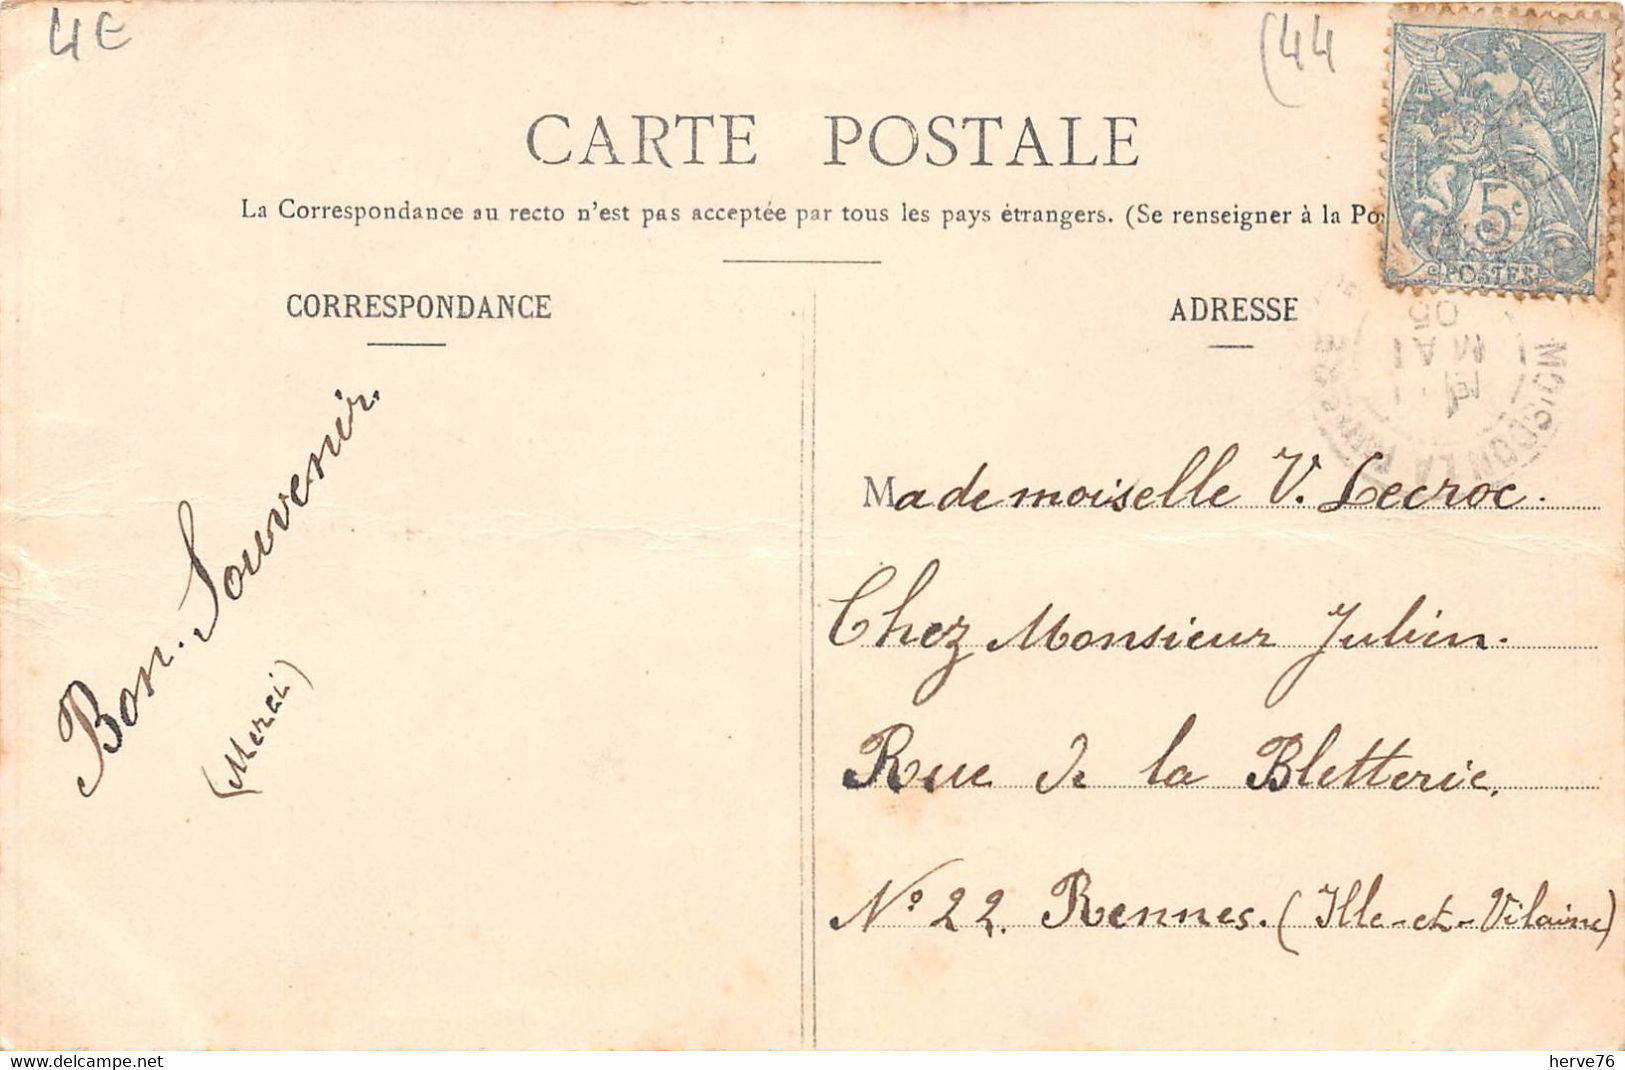 4E
(44
CARTE POSTALE
La Correspondance au recto n'est pas acceptée par tous les pays étrangers. (Se renseigner à la Po
5c
POSTES
CORRESPONDANCE
ADRESSE
MAI
05
Bon. Souvenir.
(Merci)
Mademoiselle V. Lecroc.
Chez Monsieur Julien.
Rue de la Bletterie.
N° 22. Rennes. (Ille-et-Vilaine)
https://www.delcampe.net
herve76